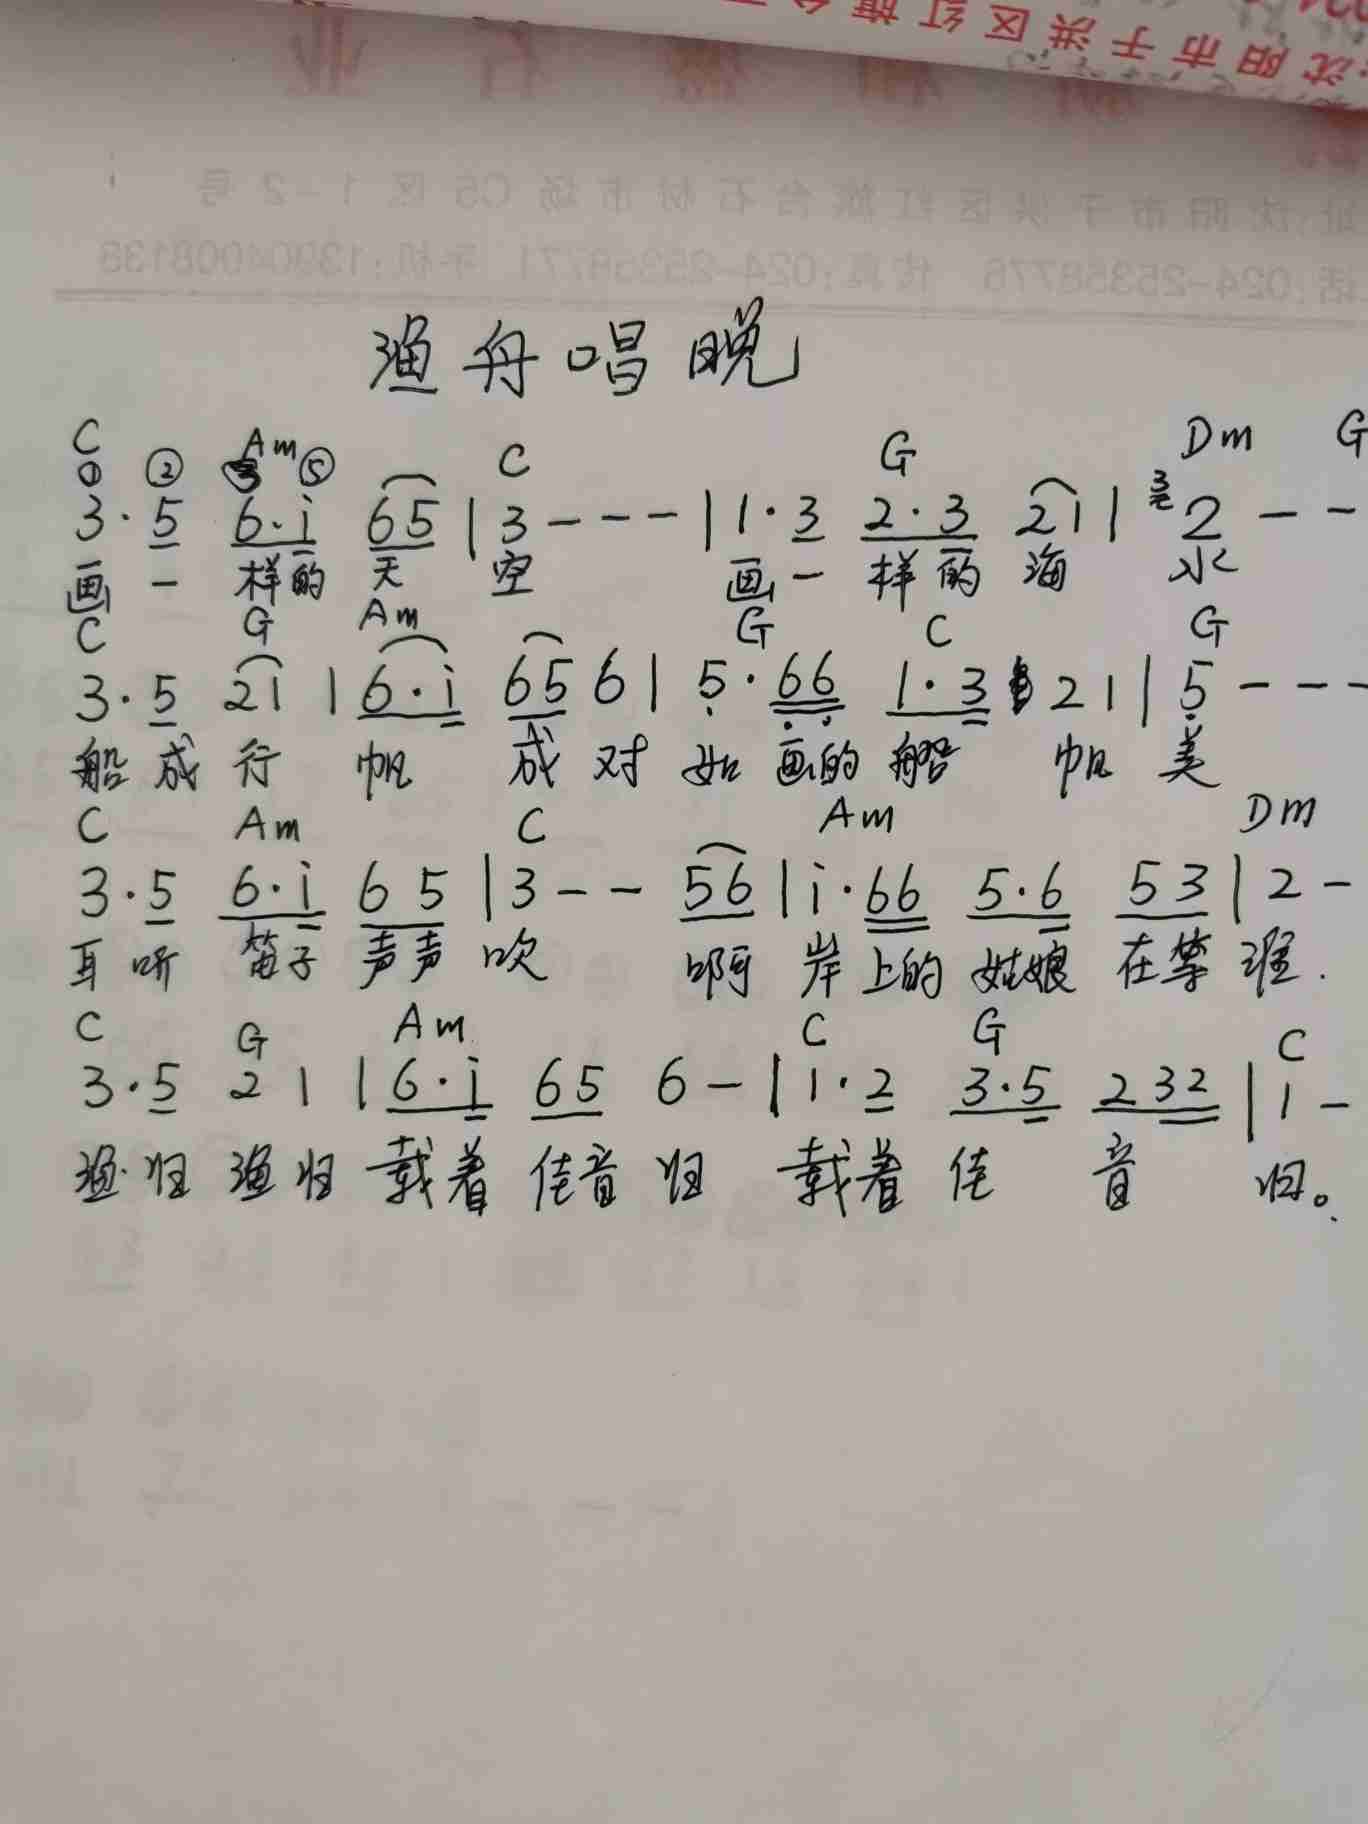 沈阳市于洪区红旗台
址:沈阳市于洪区红旗台石材市场C5区1-2号
话:024-25358776 传真:024-25358771 手机:13904008138
渔舟唱晚
C Am C G Dm G
① ② ⑤
3· 5 6·i 65 | 3 - - - | 1·3 2·3 21 | 3 2 - -
画 一 样的 天 空 画一 样的 海 水
C G Am G C G
3·5 21 | 6·i 65 6 | 5·66 1·3 21 | 5 - - -
船成 行 帆 成 对 如画的 船 帆 美
C Am C Am Dm
3·5 6·i 65 | 3 - - 56 | i·66 5·6 53 | 2 -
耳听 笛子 声声 吹 啊 岸上的 姑娘 在等 谁.
C G Am C G C
3·5 2 1 | 6·i 65 6 - | 1·2 3·5 232 | 1 -
渔归 渔归 载着 佳音 归 载着 佳 音 归。